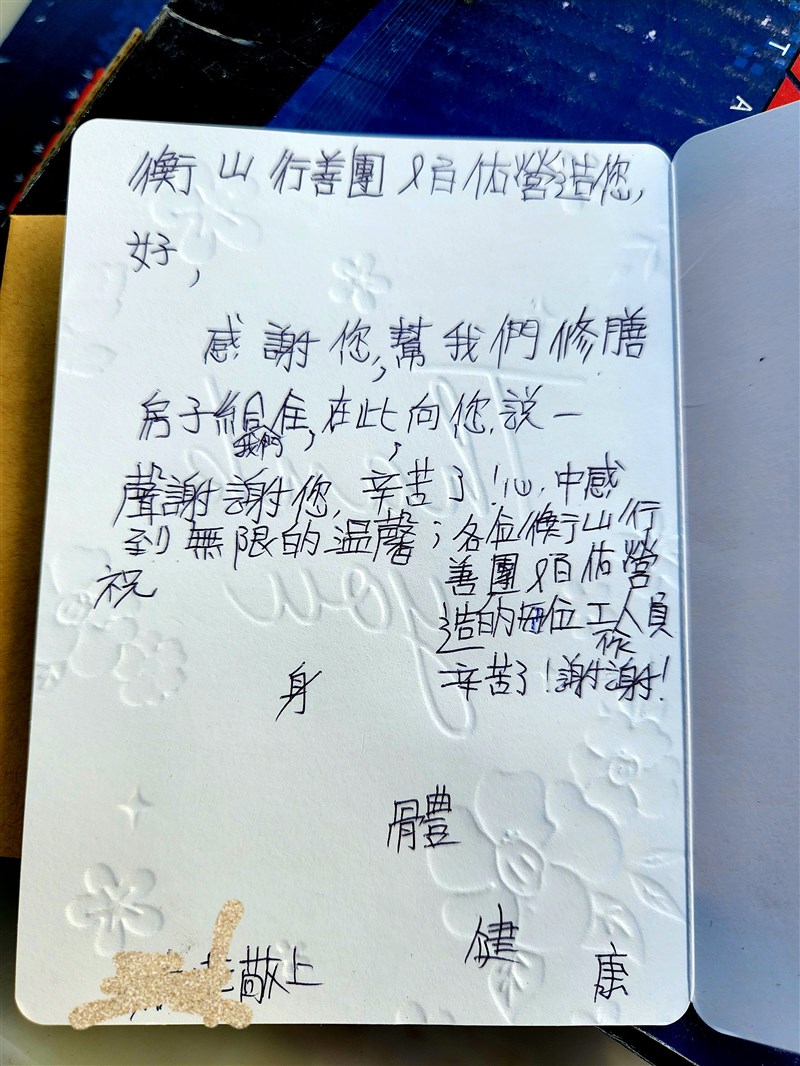 衡山行善團&百佑營造您,
好,
感謝您,幫我們修膳
房子給我們住,在此向您,說一
聲謝謝您,辛苦了!心中感
到無限的溫馨;各位衡山行
善團&百佑營
造的每位工作人員
辛苦了!謝謝!
祝
身
體
健
康
敬上
Thank
you
T
A